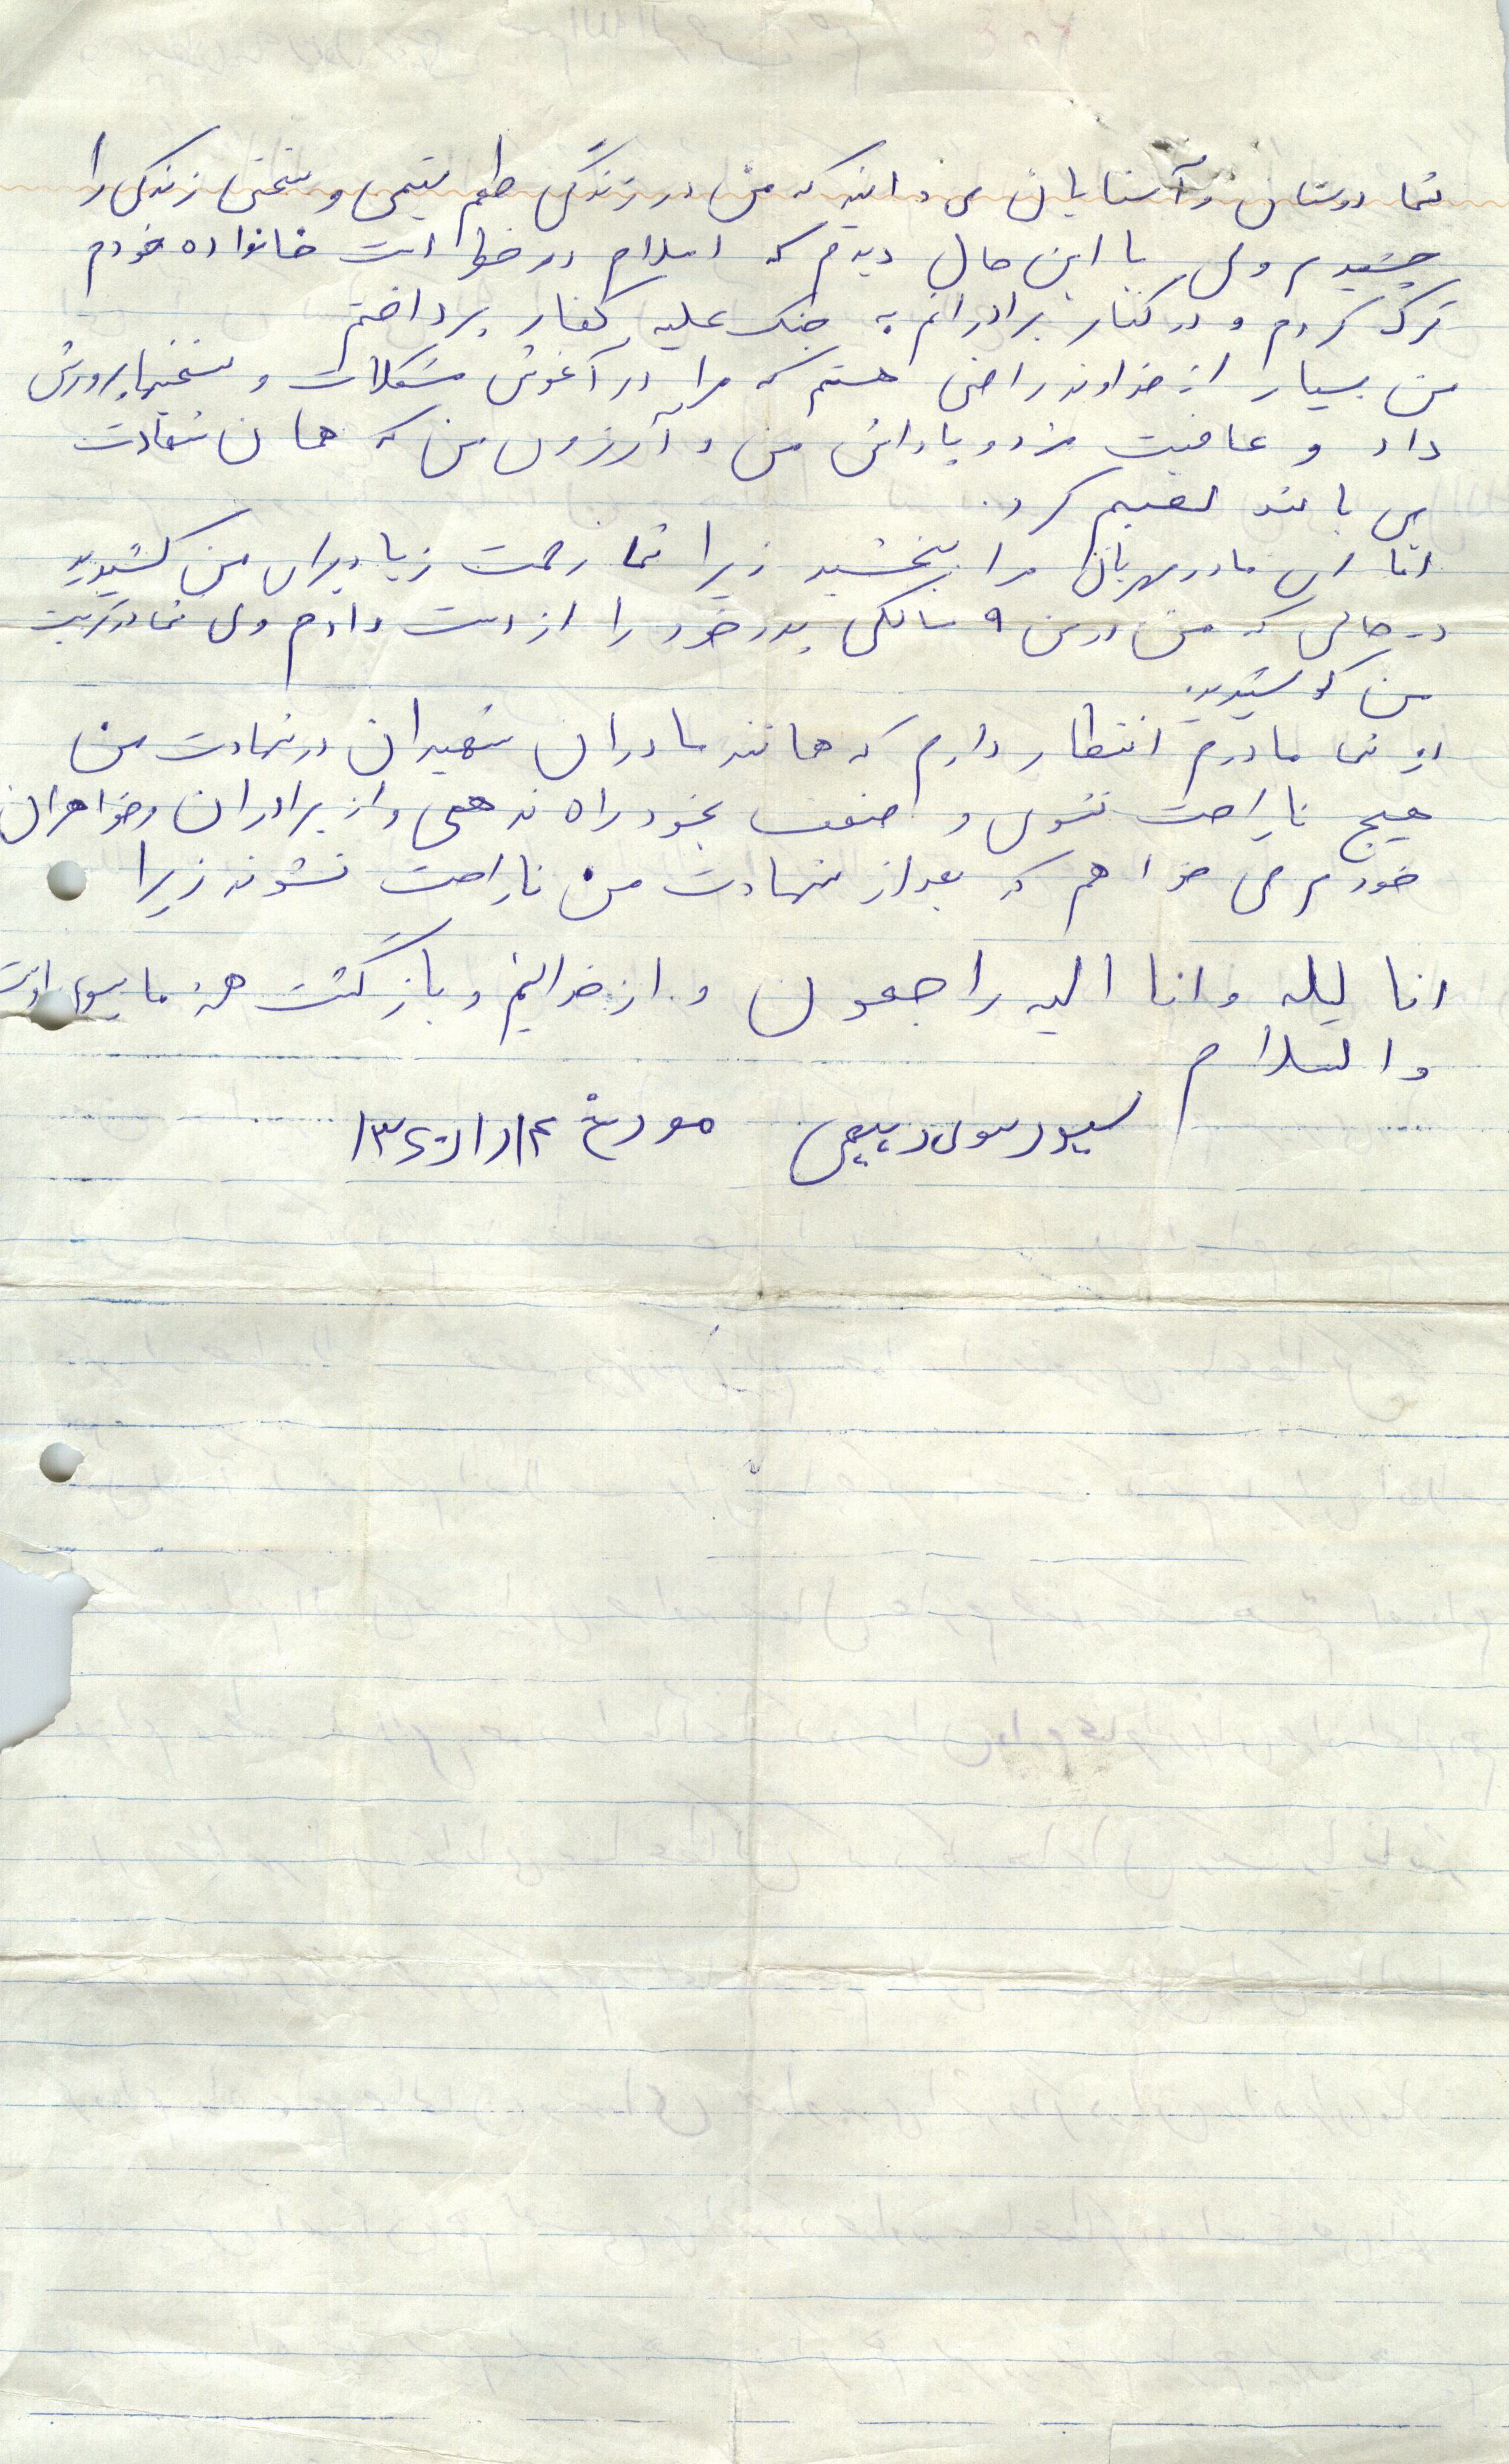 شما دوستان و آشنایان می دانید که من در زندگی طعم یتیمی و سختی زندگی را
چشیدم ولی با این حال دیدم که اسلام در خطر است خانواده خودم
ترک کردم و در کنار برادرانم به جنگ علیه کفار پرداختم
من بسیار از خداوند راضی هستم که مرا در آغوش مشکلات و سختیها پرورش
داد و عاقبت مزد و پاداش من و آرزوی من که همان شهادت
می باشد نصیبم کرد.
امّا ای مادر مهربان مرا ببخشید زیرا شما زحمت زیاد برای من کشیدید
در حالی که من در سن ۹ سالگی پدر خود را از دست دادم ولی شما در تربیت
من کوشیدید.
از شما مادرم انتظار دارم که همانند مادران شهیدان در شهادت من
هیچ ناراحت نشوی و ضعف بخود راه ندهی و از برادران و خواهران
خودم می خواهم که بعد از شهادت من ناراحت نشوند زیرا
انا لیله و انا الیه راجعون و از خدائیم و بازگشت همه ما بسوی اوست
والسلام
سید رسول ربیعی مورخ